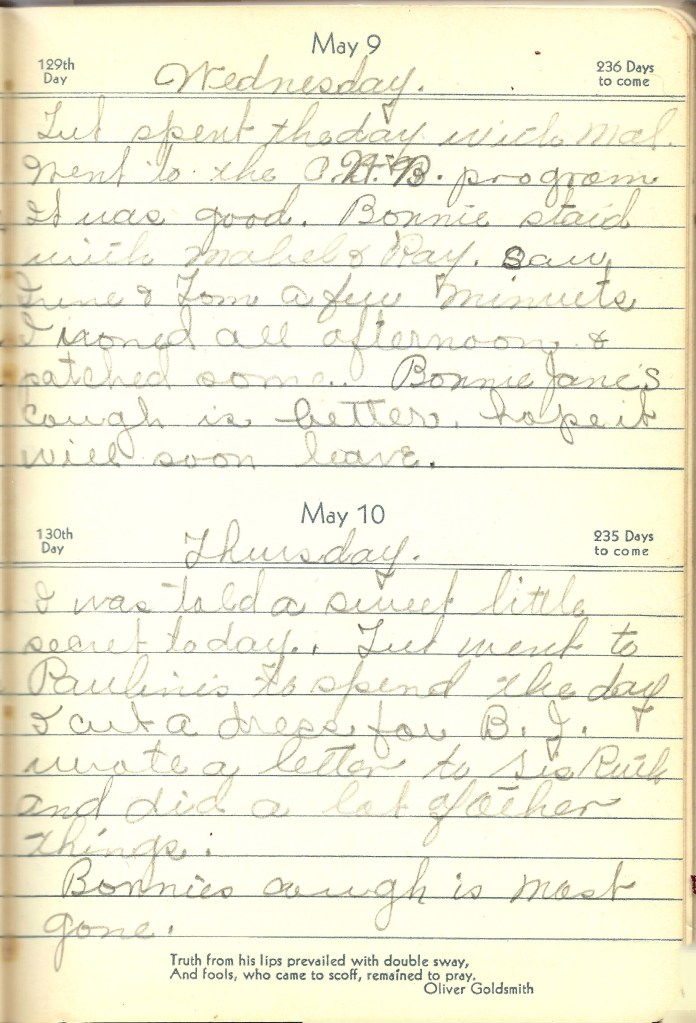 May 9
129th Day
236 Days to come
Wednesday.
Lut spent the day with Mal.
Went to the B. program
It was good. Bonnie staid
with Mabel & Ray. Saw
Irene & Tom a few minuets
I ironed all afternoon &
patched some. Bonnie Jane's
cough is better. hope it
will soon leave.
May 10
130th Day
235 Days to come
Thursday.
I was told a sweet little
secret today. Lut went to
Paulines to spend the day
I cut a dress for B. J.
wrote a letter to Sis Ruth
and did a lot of other
things.
Bonnies cough is most
gone.
Truth from his lips prevailed with double sway,
And fools, who came to scoff, remained to pray.
Oliver Goldsmith